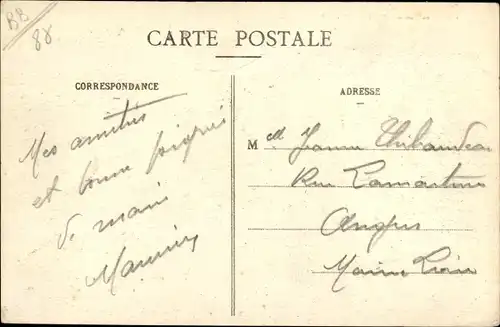 BB
88
CARTE POSTALE
CORRESPONDANCE
Mes amitiés
et bonne poignée
de main
ADRESSE
Melle Jeanne Thibaudeau
Rue Lamartine
Angers
Maine Loire